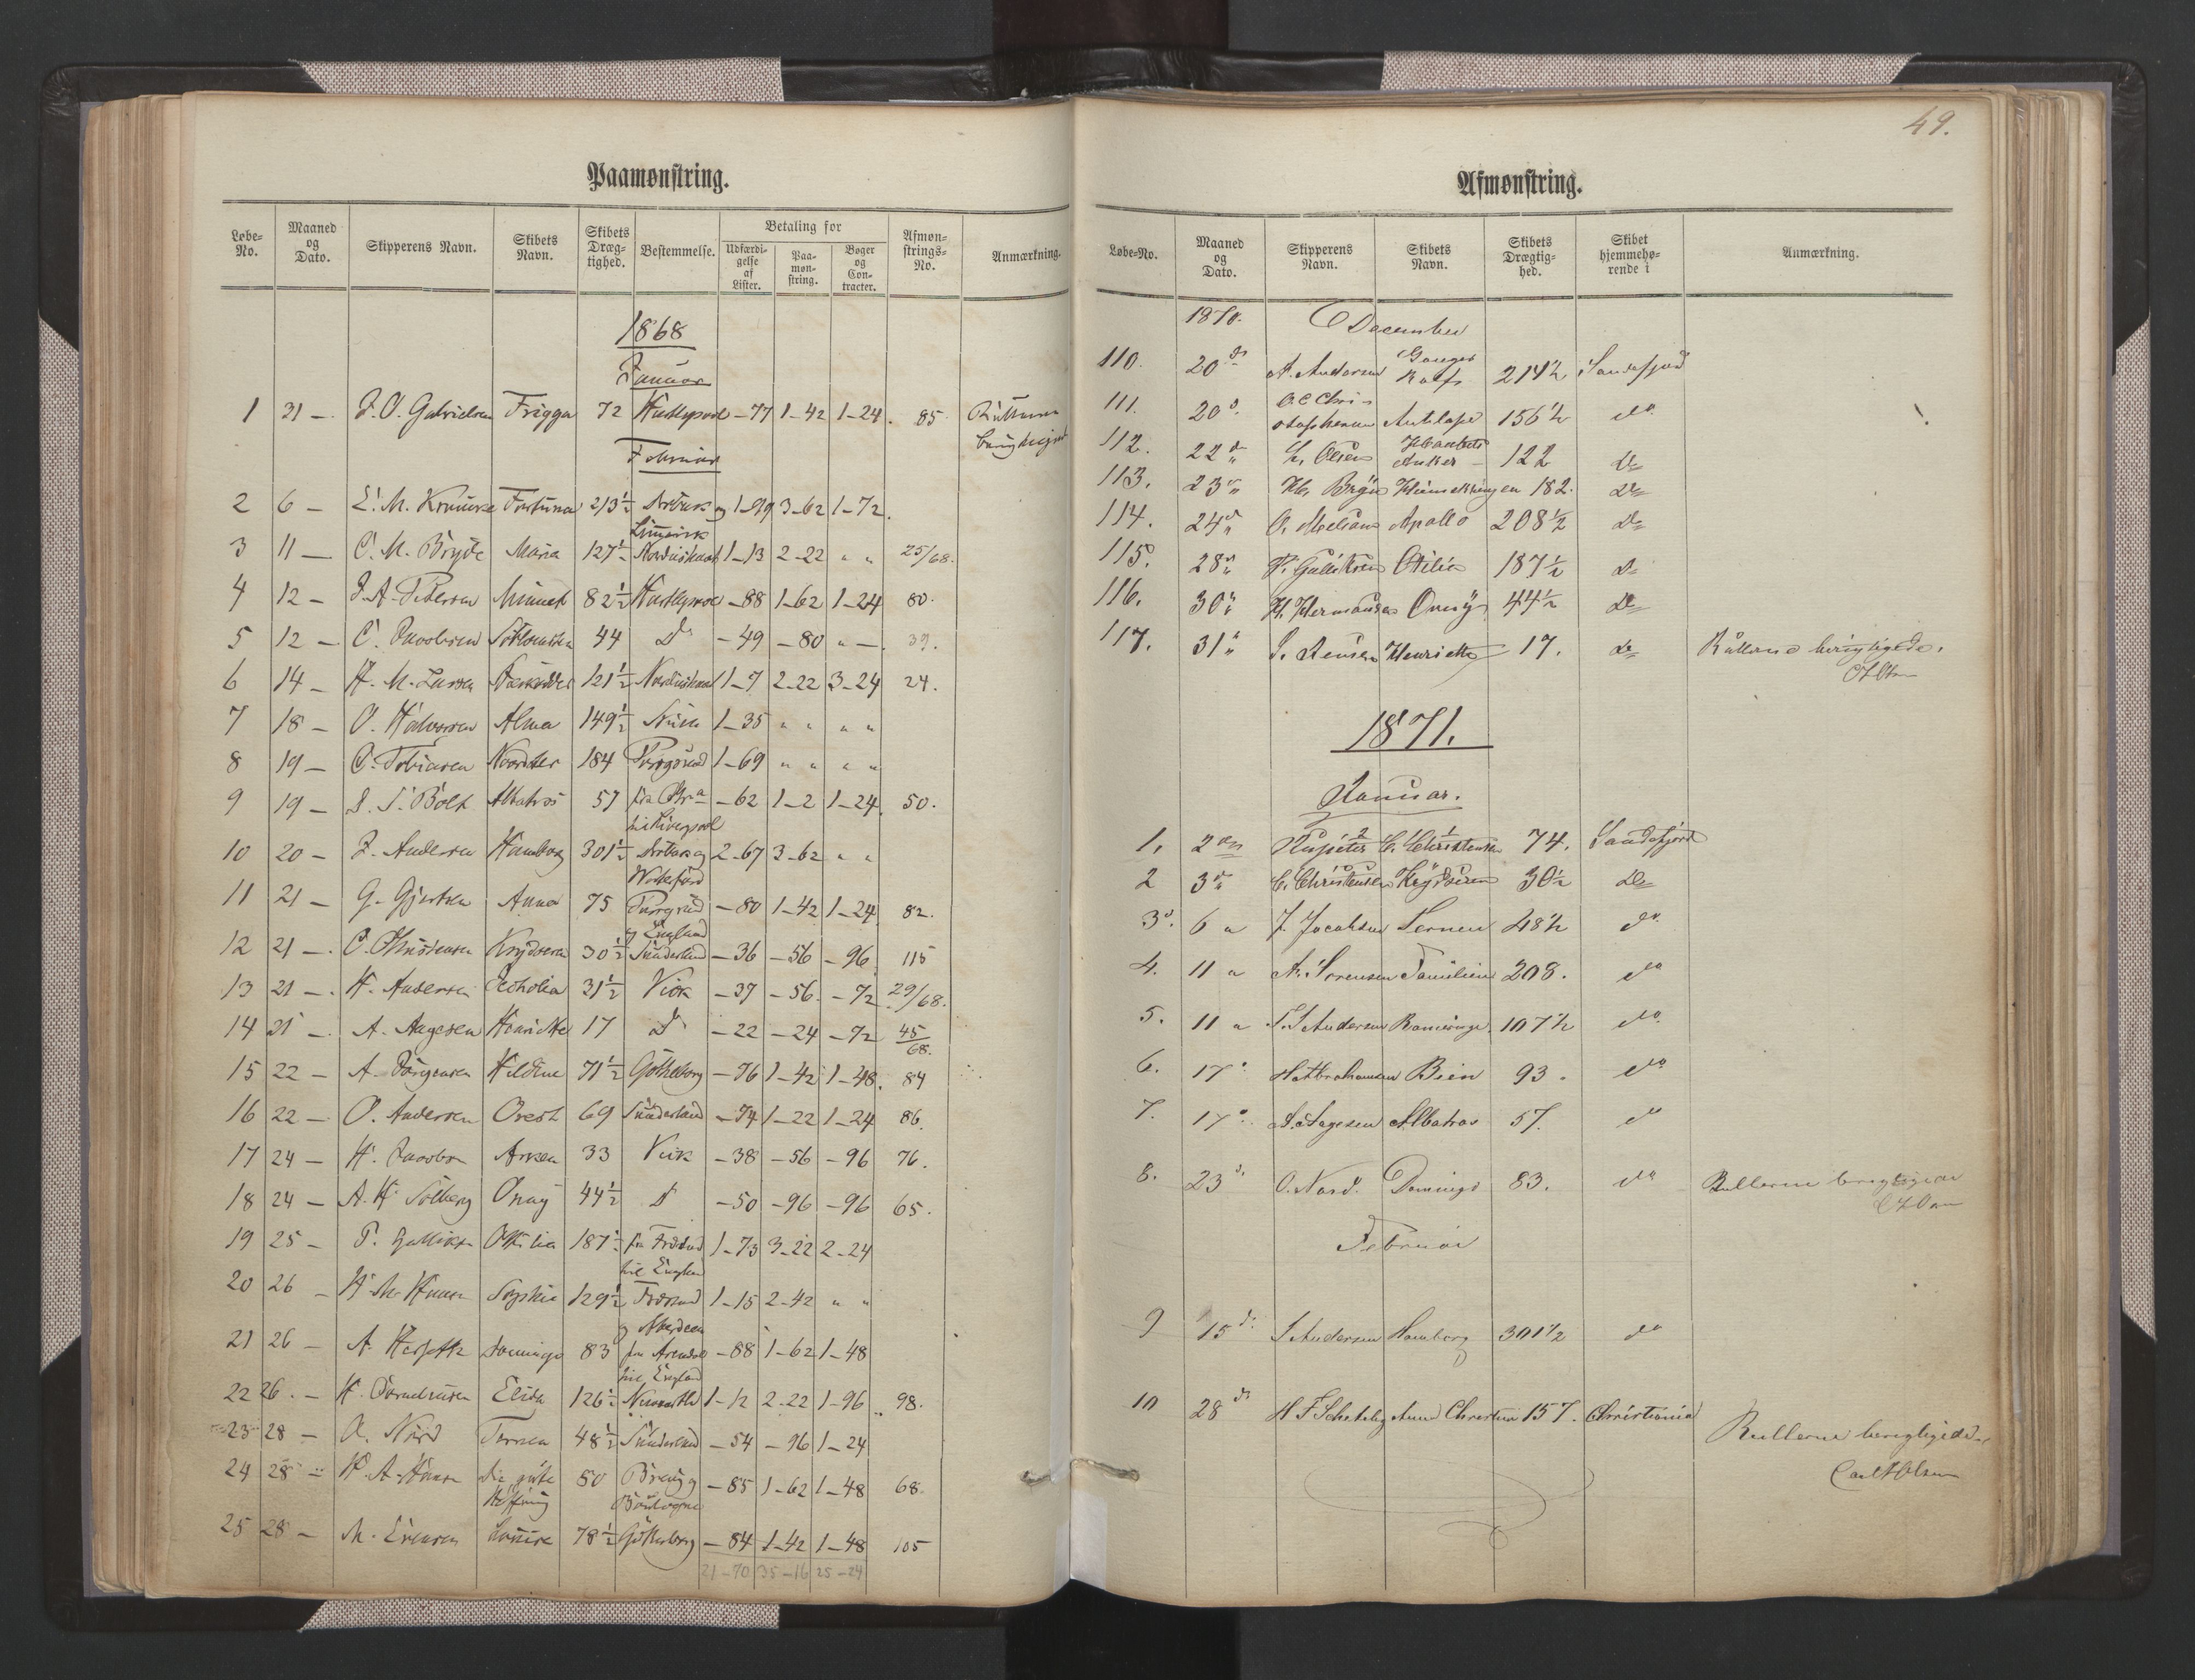 Paamønstring.
Løbe-No. Maaned og Dato. Skipperens Navn. Skibets Navn. Skibets Dræg-tighed. Bestemmelse. Betaling for Udfærdi-gelse af Lister. Paa-møn-string. Bøger og Con-tracter. Afmøn-strings-No. Anmærkning.
1868
Januar
1 21 — J. O. Gabrielsen Frigga 72 Hartlepool — 77 1 — 42 1 — 24. 85.
Februar
2 6 — Fortuna 213½ og 1 — 99 3 — 62 1 — 72.
3 11 — C. M. Bryde Maria 127½ 1 — 13 2 — 22 " " 25/68.
4 12 — J. A. Pedersen Minnet 82½ Hartlepool — 88 1 — 62 1 — 24 80.
5 12 — C. Jacobsen 44 Do — 49 — 80 " — 39.
6 14 — H. M. Larsen 121½ 1 — 7 2 — 22 3 — 24 24.
7 18 — O. Halvorsen Alma 149½ 1 — 35 " " " "
8 19 — C. Tobiasen 184 Porsgrund 1 — 69 " " " "
9 19 — Albatros 57 fra Chra — 62 1 — 2 1 — 24. 50.
til Liverpool
10 20 — J. Andersen Hamborg 301½ og 2 — 67 3 — 62 " "
11 21 — G. Gjertsen Anna 75 Porsgrund — 80 1 — 42 1 — 24. 82.
og England
12 21 — C. Christensen Krydseren 30½ Sunderland — 36 — 56 — 96 115
13 21 — H. Andersen 31½ Viik — 37 — 56. — 72 29/68.
14 21 — A. Aagesen Henriette 17 Do — 22 — 24 — 72 45/68.
15 22 — A. Jørgensen Hildine 71½ Gøtheborg — 76 1 — 42 1 — 48. 84
16 22 — O. Andersen Orest 69 Sunderland — 74 1 — 22 1 — 24 86.
17 24 — H. Jacobsen 33 Viik — 38 — 56 — 96 76.
18 24 — A. H. Solberg Onny 44½ D — 50 — 96 — 96 65.
19 25 — P. Gulliksen Ottilia 187½ fra 1 — 73 3 — 22 2 — 24
til England
20 26 — H. M. Hansen Sophie 129½ 1 — 15 2 — 42 " "
og Aberdeen
21 26 — A. Domingo 83 fra Arendal — 88 1 — 62 1 — 48
til England
22 26. — H. Elida 126½ Newcastle 1 — 12 2 — 22 1 — 96 98.
23 28 — O. Nord Ternen 48½ Sunderland — 54 — 96 1 — 24
24 28 — H. A. Hansen Die gute 50 — 85 1 — 62 1 — 48 68.
Hoffnung Boulogne
25 28 — M. Evensen Louise 78½ Gøtheborg — 84 1 — 42 1 — 48 105
21 — 70 35 — 16 25 — 24
49.
Afmønstring.
Løbe-No. Maaned og Dato. Skipperens Navn. Skibets Navn. Skibets Drægtig-hed. Skibet hjemmehø-rende i Anmærkning.
1870. December
110. 20 do A. Andersen Ganger Rolf 214½ Sandefjord
111. 20 do O. C. Christophersen Antilope 156½ do
112. 22 do L. Olsen Haabets Anker — 122 do
113. 23 " 182. do
114. 24 d O. Apollo 208½ do
115. 28 " P. Gulliksen Otilia 187½ do
116. 30 " H. Hermansen Onny 44½ do
117. 31 " J. Jensen Henriette 17. do Rullerne berigtigede.
1871.
Januar.
1. 2 den Jupiter C. Christensen 74. Sandefjord
2 3 do C. Christensen Krydseren 30½ do
3. 6 " J. Jacobsen Ternen 48½ do
4. 11 " A. Sørensen Familien 208. do
5. 11 " Andersen 107½ do
6. 17 " H. Abrahamsen Bien 93. do
7. 17 " A. Aagesen Albatros 57. do
8. 23 d. O. Nord. Domingo 83. do Rullerne berigtigede
Februar
9 15 d. J. Andersen Hamborg 301½ do
10 28 d. H F Schetelig Anna Christine 157. Christiania
Rullerne berigtigede.
Carl A Olsen